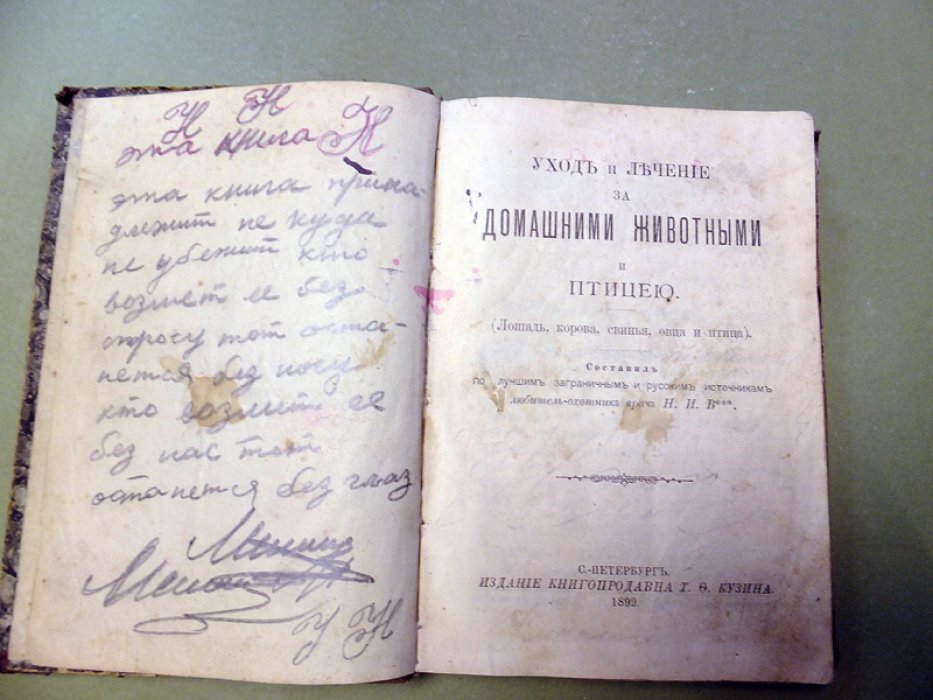 Н Н
эта книга Н
эта книга прина-
длежит не куда
не убежит кто
возмет ее без
спросу тот оста-
нется без носу
кто возмит ее
без нас тот
останется без глаз
У Н
УХОДЪ и ЛѢЧЕНІЕ
ЗА
ДОМАШНИМИ ЖИВОТНЫМИ
И
ПТИЦЕЮ.
(Лошадь, корова, свинья, овца и птица).
Составилъ
по лучшимъ заграничнымъ и русскимъ источникамъ
любитель-охотникъ врачъ Н. И. В***.
С.-ПЕТЕРБУРГЪ.
ИЗДАНІЕ КНИГОПРОДАВЦА Т. Ѳ. КУЗИНА
1892.